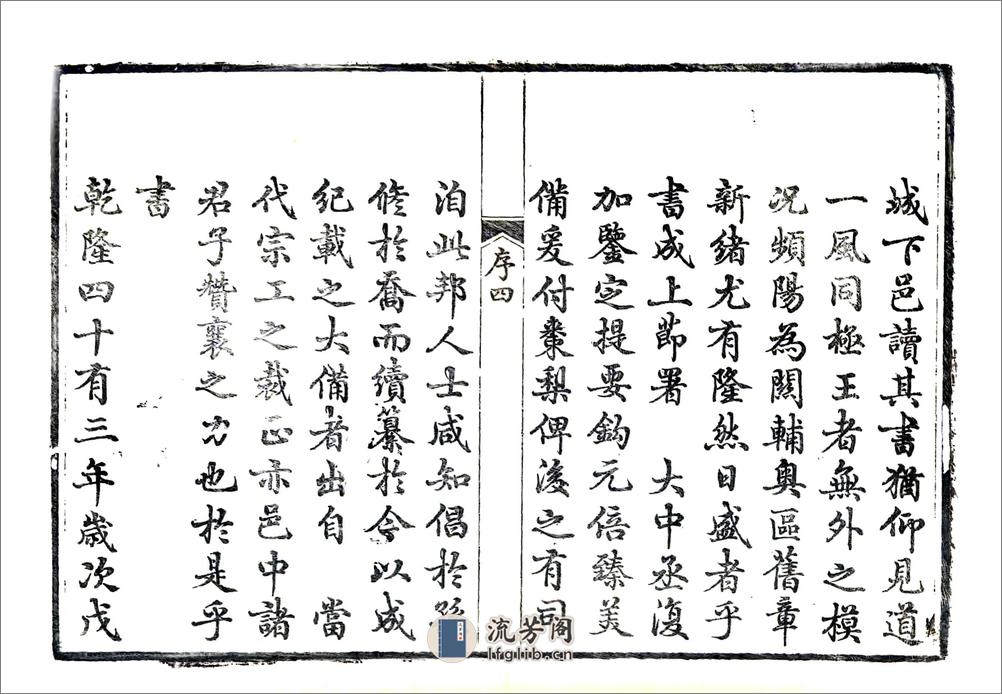 域下邑讀其書猶仰見道
一風同極王者無外之模
况頻陽為關輔奧區舊章
新緒尤有隆然日盛者乎
書成上節署　大中丞復
加鑒定提要鈎元倍臻美
備爰付棗梨俾後之有司
序四
洎此邦人士咸知倡於
修於喬而續纂於今以成
紀載之大備者出自　當
代宗工之裁正亦邑中諸
君子贊襄之力也於是乎
書
乾隆四十有三年歲次戊
流芳阁
lfglib.cn